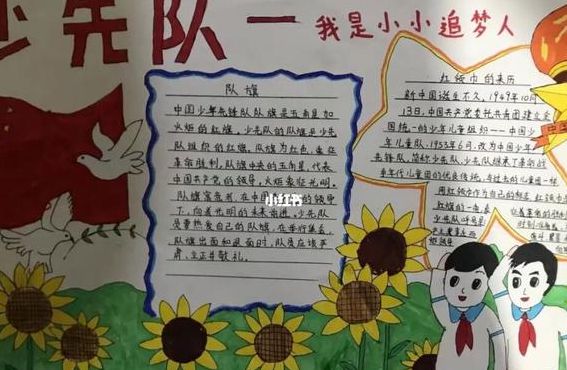 少先队一我是小小追梦人
队旗
中国少年先锋队队旗是五角星加
火炬的红旗,少先队的队旗是少先
队组织的红旗,队旗为红色,象征
革命胜利,队旗中央的五角星,代表
中国共产党的领导,火炬象征光明,
下,向着光明的未来前进,少先队
员要热爱自己的队旗,在举行集会,
队旗出面和返回时,队员应该严
肃、立正并敬礼。
小红书
红领巾的来历
新中国诞生不久,1949年10月
13日,中国共产党委托共青团建立全
国统一的少年儿童组织——中国少
年儿童队,1953年6月,改为中国少年
先锋队,简称少先队,少先队继承了革命战
用红领巾作为自己的标志,红领巾
红旗的一角